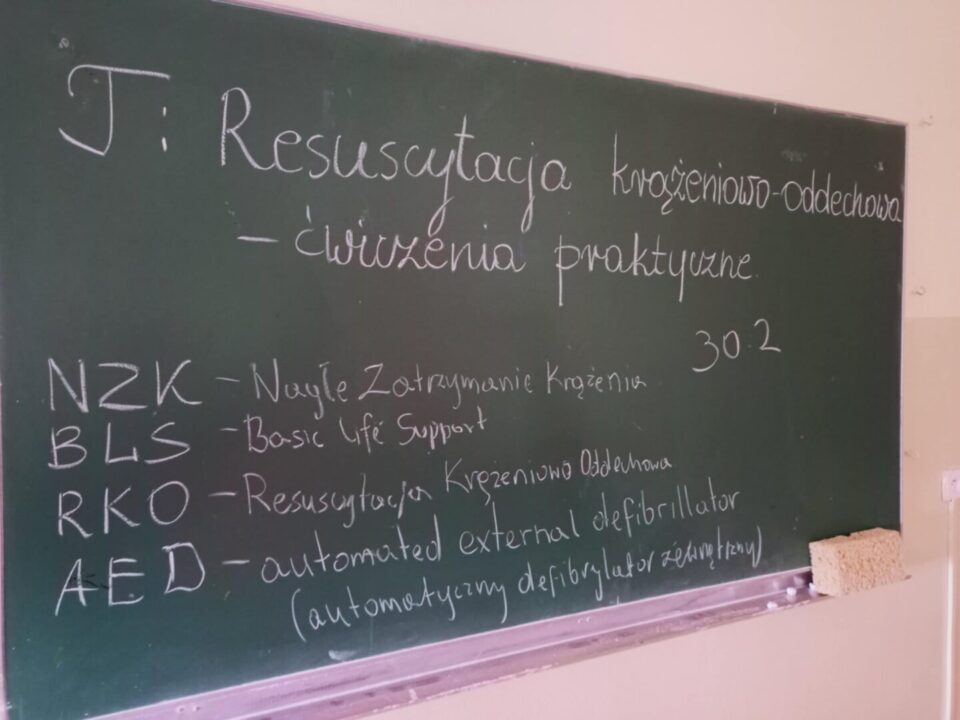 T: Resuscytacja krążeniowo-oddechowa
- ćwiczenia praktyczne
30:2
NZK - Nagłe Zatrzymanie Krążenia
BLS - Basic Life Support
RKO - Resuscytacja Krążeniowo Oddechowa
AED - automated external defibrillator
(automatyczny defibrylator zewnętrzny)